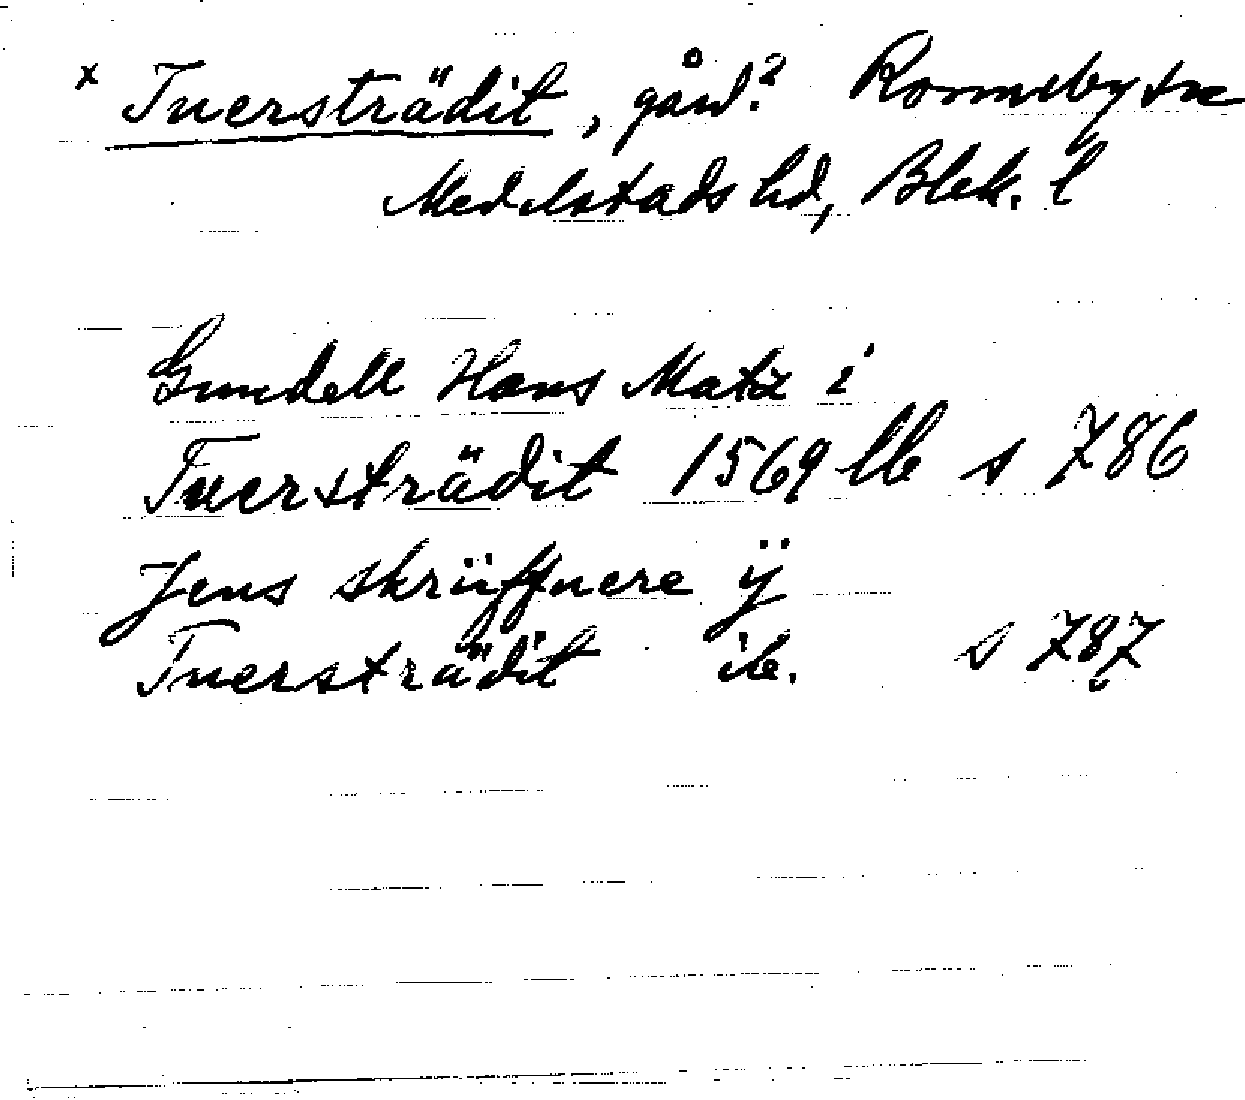 x Tuersträdit, gård? Ronneby sn
Medelstads hd, Blek. l
Gundell Hans Matz i
Tuersträdit 1569 lb s 786
Jens skrüffuere ÿ
Tuersträdit ib. s 787